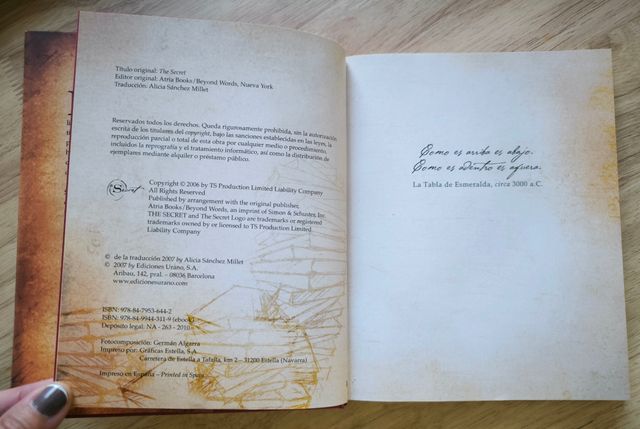 Título original: The Secret
Editor original: Atria Books/Beyond Words, Nueva York
Traducción: Alicia Sánchez Millet
Reservados todos los derechos. Queda rigurosamente prohibida, sin la autorización
escrita de los titulares del copyright, bajo las sanciones establecidas en las leyes, la
reproducción parcial o total de esta obra por cualquier medio o procedimiento,
incluidos la reprografía y el tratamiento informático, así como la distribución de
ejemplares mediante alquiler o préstamo público.
Secret
Copyright © 2006 by TS Production Limited Liability Company
All Rights Reserved
Published by arrangement with the original publisher,
Atria Books/Beyond Words, an imprint of Simon & Schuster, Inc.
THE SECRET and The Secret Logo are trademarks or registered
trademarks owned by or licensed to TS Production Limited
Liability Company
© de la traducción 2007 by Alicia Sánchez Millet
© 2007 by Ediciones Urano, S.A.
Aribau, 142, pral. – 08036 Barcelona
www.edicionesurano.com
ISBN: 978-84-7953-644-2
ISBN: 978-84-9944-311-9 (ebook)
Depósito legal: NA - 263 - 2010
Fotocomposición: Germán Algarra
Impreso por: Gráficas Estella, S.A.
Carretera de Estella a Tafalla, km 2 – 31200 Estella (Navarra)
Impreso en España – Printed in Spain
Como es arriba es abajo.
Como es adentro es afuera.
La Tabla de Esmeralda, circa 3000 a.C.